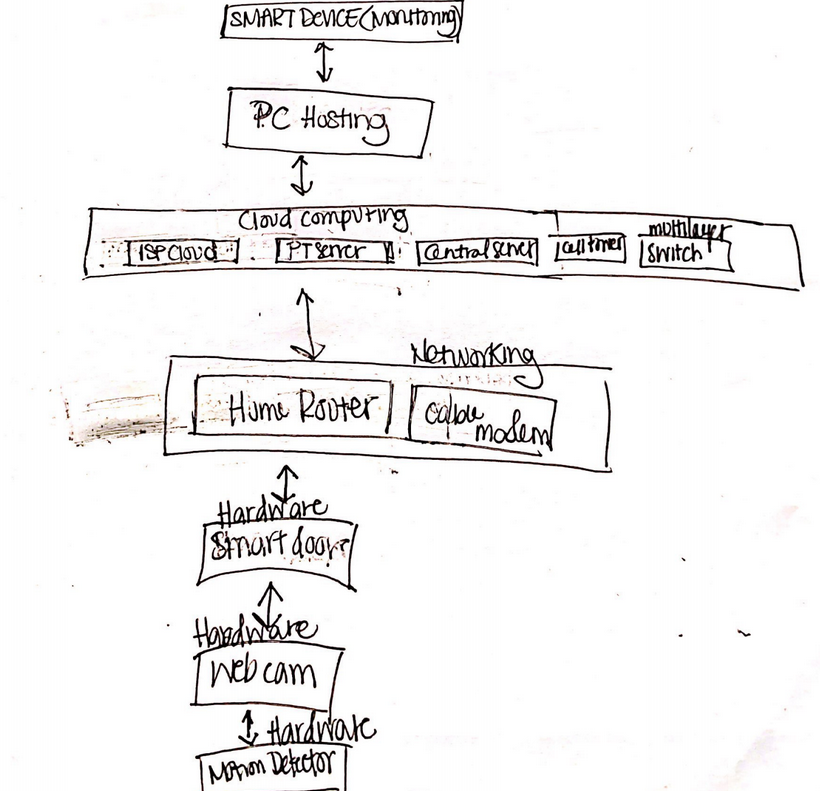 SMART DEVICE (Monitoring)
PC Hosting
Cloud computing
ISP Cloud PT server Central server cell tower multilayer switch
Networking
Home Router cable modem
Hardware
Smart door
Hardware
Web cam
Hardware
Motion Detector